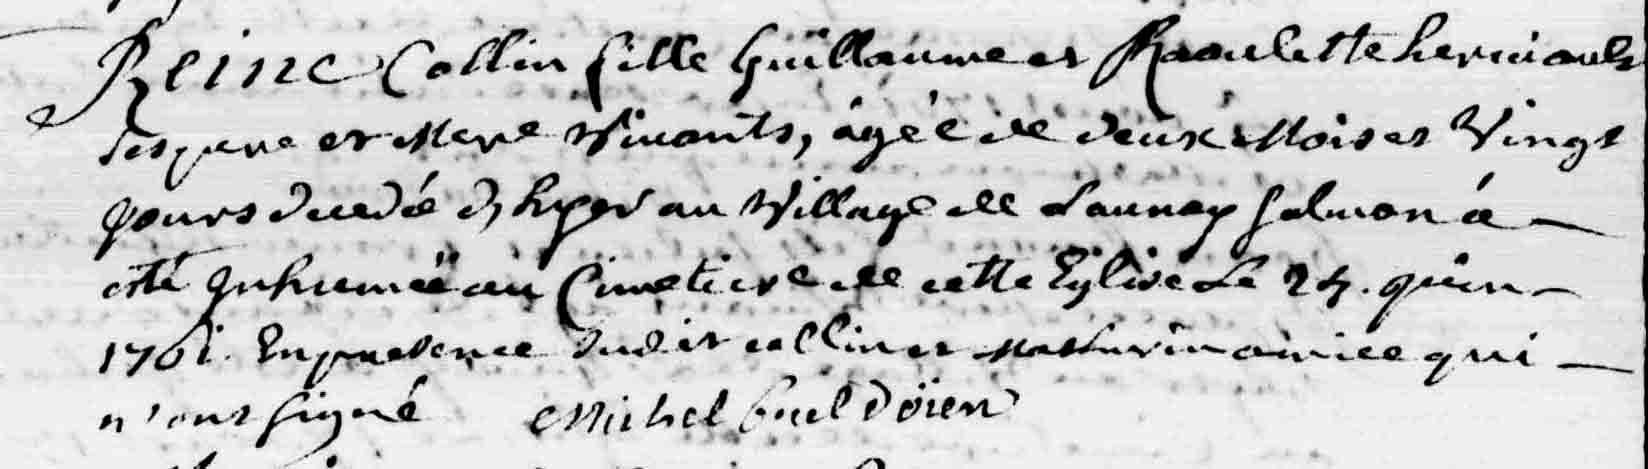 Reine Collin fille Guillaume et Raoulette heruiault
ses pere et Mere Viuants, ágéé de deux Mois et Vingt
jours decedé d'hyer au Village de Launay Salmon á
esté Inhumeé au Cimetiere de cette Eglise Le juin
1701. En presence dudit collin et Mathurin qui
n'ont signé Michel doïen